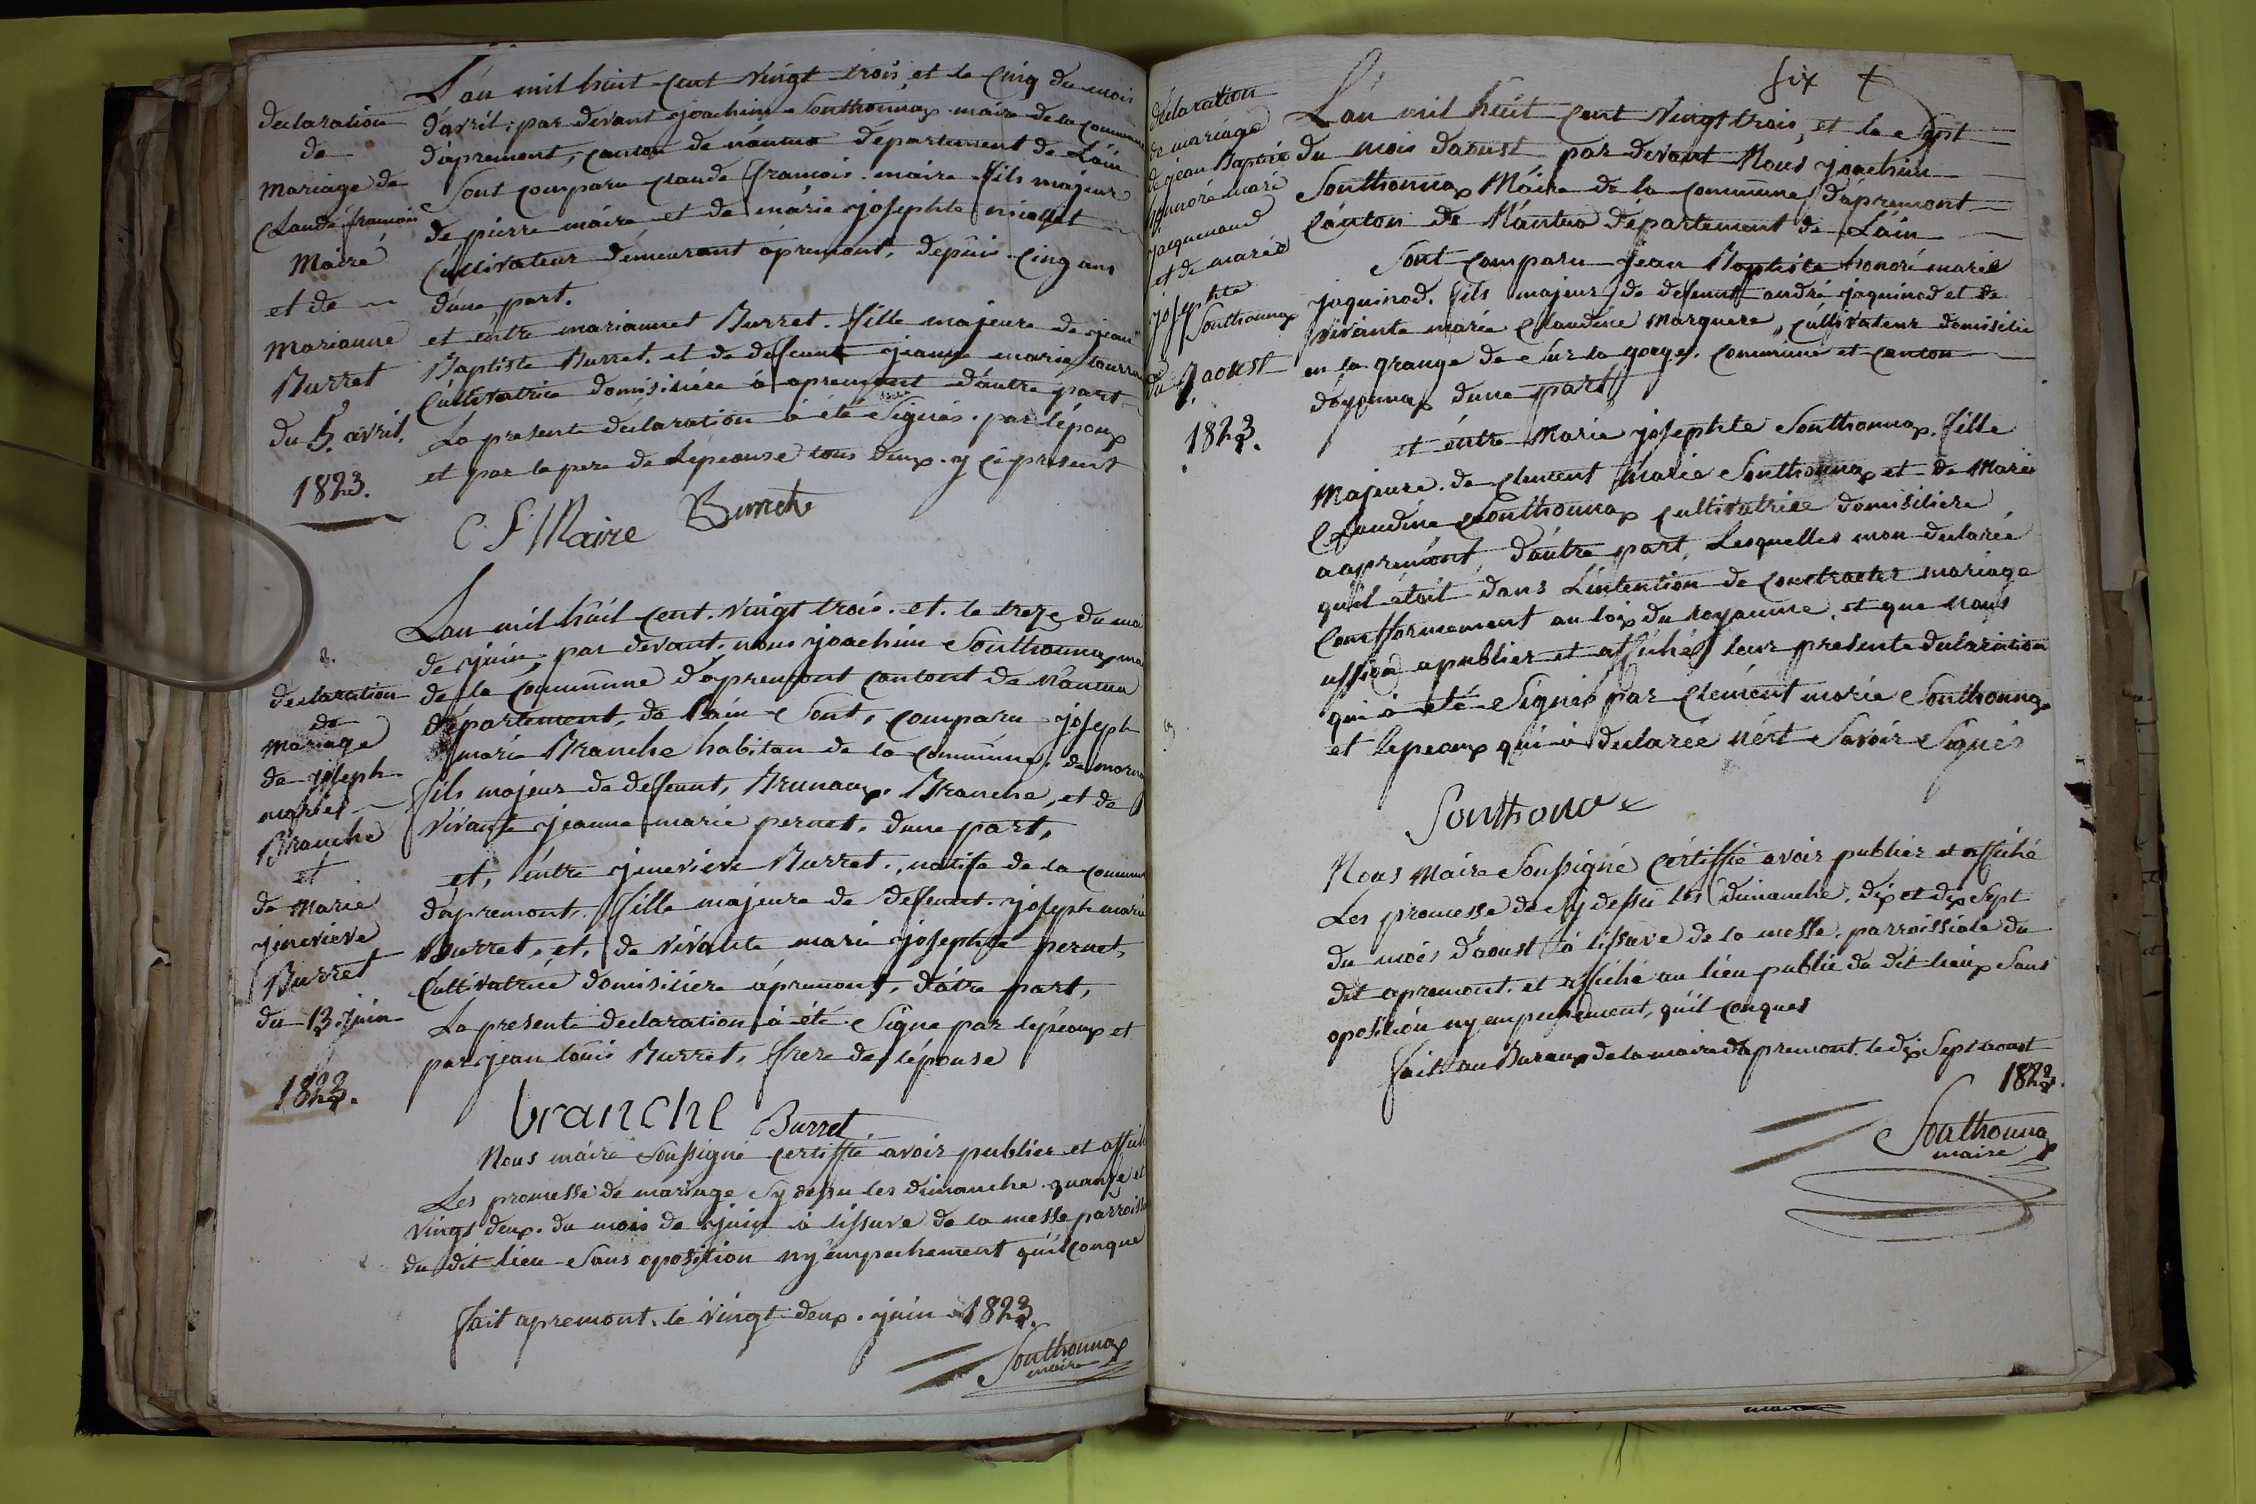 declaration
de
mariage de
Claude francois
Maire
et de
Marianne
Burret
du 5. avril.
1823.
L'an mil huit cent vingt trois et le cinq du mois
d'avril, par devant joachim Sonthonnax maire de la commune
d'apremont, canton de nantua département de L'ain
Sont comparu claude francois maire fils majeur
de pierre maire et de marie josephte nicollet
Cultivateur demeurant apremont, depuis cinq ans
d'une part.
et entre mariannet Burret. fille majeure de jean
Baptiste Burret. et de defeunt jeanne marie
Cultivatrice domisiliére à apremont d'autre part
La presente declaration à été Signés. par l'époux
et par le pere de Lepeouse tous deux. y ci present
C f Maire Burret
declaration
de
mariage
de joseph
marie
Branche
et
de Marie
jinevieve
Burret
du 13. juin
1823.
Lan mil huit cent. vingt trois. et. le treze du moi
de juin, par devant. nous joachim Sonthonnax
de la Commune d'apremont contont de nantua
département, de l'ain Sont, comparu joseph
marie Branche habitan de la commune. de
fils majeur de defeunt, Brunaux. Branche, et de
vivante jeanne marie pernet. dune part,
et, éntre jinevieve Burret., natife de la commun
dapremont. fille majeure de defeunt. joseph marie
Burret, et, de vivante marie josephte pernet,
Cultivatrice domisiliére àpremont, d'atre part,
La presente declaration à été Signe par lepéoux et
par jean louis Burret, frere de lépouse
branche Burret
Nous maire Soussigné certiffié avoir publier et affiché
Les promesse de mariage Sy dessu les dimanche quanze et
vingt deux. du mois de juin à lissuve de la messe
du dit lieu Sans oposition ny empechement quilconque
fait apremont. le vingt deux. juin 1823.
Sonthonnax
maire
six
declaration
de mariage
de jean Baptiste
honnoré marie
jacquenaud
et de marie
josephte
Sonthonnax
du 7. aoust
1823.
L'an mil huit cent vingt trois, et le Sept
du mois daoust par devant Nous joachim
Sonthonnax Maire de la commune, d'apremont
Canton de Nantua département de L'ain
Sont comparu jean Baptiste honoré marie
jaquinod. fils majeur de defeunt andré jaquinod et de
vivante marie Claudine Marquere, cultivateur domisilié
en la grange de Sur la gorge, commune et canton
d'oyonnax d'une part
et éntre Marie josephte Sonthonnax. fille
Majeure. de clement Marie Sonthonnax et de Marie
Claudine Sonthonnax cultivatrice domisiliere
a apremont, d'autre part, Lesquelles mon declarée
quil étoit dans L'intention de contracter mariage
Confformement au loix du royaume, et que nous
ussion apublier et affiché leur presente declaration
qui à été Signés par clement marie Sonthonnax
et lepeoux qui à declarée n'ért Savoir Signés
Sonthonax
Nous Maire Soussigné Certiffié avoir publier et affiché
Les promesse de Sy dessu les dimanche, dix et dix Sept
du mois d'aoust à lissuve de la messe. parroissiale du
dit apremont. et affiché au lieu public du dit lieux Sans
oposition ny empechement, quil conques
fait au Bureaux de la mairie d'apremont. le dix Sept aoust
1823.
Sonthonnax
maire